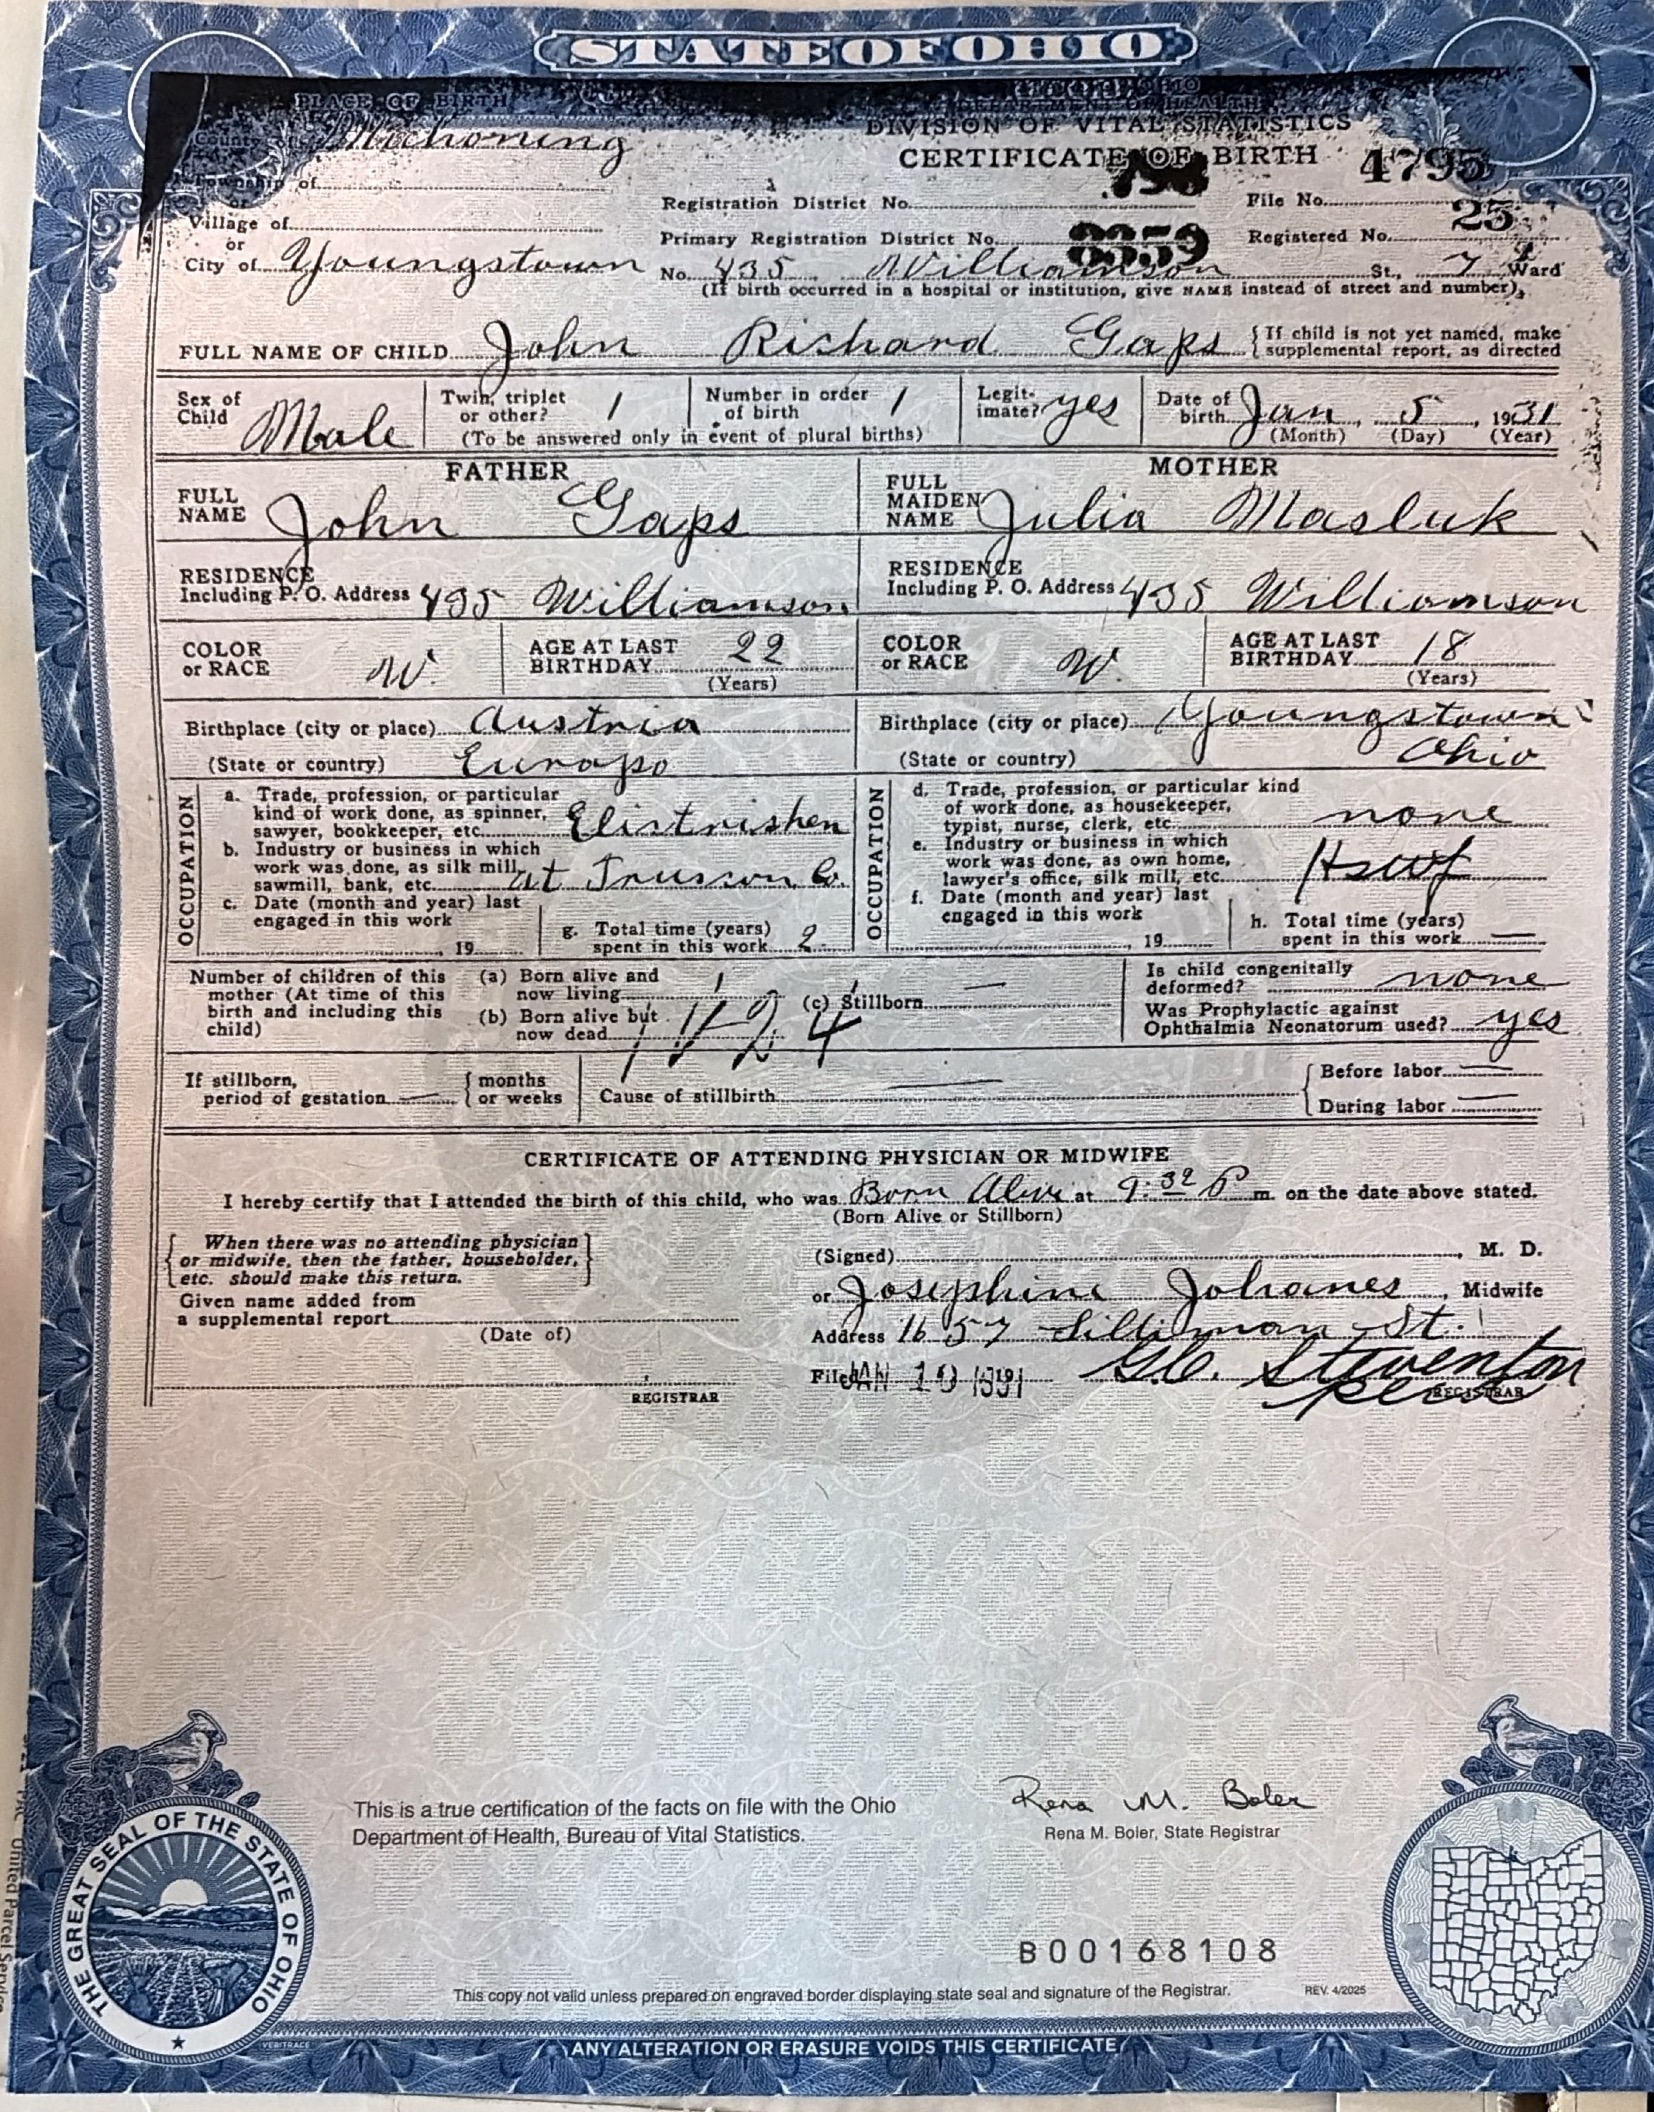 STATE OF OHIO
PLACE OF BIRTH
STATE OF OHIO
DEPARTMENT OF HEALTH
DIVISION OF VITAL STATISTICS
CERTIFICATE OF BIRTH
County of Mahoning
Township of
or
Village of
or
City of Youngstown
Registration District No. 798
File No. 4795
Primary Registration District No. 8359
Registered No. 25
No. 435 Williamson St., 7 Ward
(If birth occurred in a hospital or institution, give NAME instead of street and number)
FULL NAME OF CHILD John Richard Gaps { If child is not yet named, make supplemental report, as directed
Sex of Child Male
Twin, triplet or other? 1
Number in order of birth 1
(To be answered only in event of plural births)
Legitimate? yes
Date of birth Jan 5, 1931
(Month) (Day) (Year)
FATHER
FULL NAME John Gaps
MOTHER
FULL MAIDEN NAME Julia Masluk
RESIDENCE Including P. O. Address 435 Williamson
RESIDENCE Including P. O. Address 435 Williamson
COLOR or RACE W.
AGE AT LAST BIRTHDAY 22 (Years)
COLOR or RACE W.
AGE AT LAST BIRTHDAY 18 (Years)
Birthplace (city or place) Austria
(State or country) Europo
Birthplace (city or place) Youngstown
(State or country) Ohio
OCCUPATION
a. Trade, profession, or particular kind of work done, as spinner, sawyer, bookkeeper, etc. Elistrishen
b. Industry or business in which work was done, as silk mill, sawmill, bank, etc. at Truscon Co.
c. Date (month and year) last engaged in this work , 19
g. Total time (years) spent in this work 2
OCCUPATION
d. Trade, profession, or particular kind of work done, as housekeeper, typist, nurse, clerk, etc. none
e. Industry or business in which work was done, as own home, lawyer's office, silk mill, etc. Hswf
f. Date (month and year) last engaged in this work , 19
h. Total time (years) spent in this work —
Number of children of this mother (At time of this birth and including this child)
(a) Born alive and now living 1
(b) Born alive but now dead
(c) Stillborn —
Is child congenitally deformed? none
Was Prophylactic against Ophthalmia Neonatorum used? yes
If stillborn, period of gestation — { months or weeks
Cause of stillbirth —
{ Before labor —
During labor —
CERTIFICATE OF ATTENDING PHYSICIAN OR MIDWIFE
I hereby certify that I attended the birth of this child, who was Born Alive at 9:32 P m. on the date above stated.
(Born Alive or Stillborn)
{ When there was no attending physician or midwife, then the father, householder, etc. should make this return. }
(Signed) , M. D.
or Josephine Johanes, Midwife
Given name added from a supplemental report
(Date of)
Address 1657 St.
Filed JAN 10 1931 G.C. Steventon
REGISTRAR
REGISTRAR
This is a true certification of the facts on file with the Ohio
Department of Health, Bureau of Vital Statistics.
Rena M. Boler
Rena M. Boler, State Registrar
THE GREAT SEAL OF THE STATE OF OHIO
B00168108
This copy not valid unless prepared on engraved border displaying state seal and signature of the Registrar.
REV. 4/2025
VERITRACE
ANY ALTERATION OR ERASURE VOIDS THIS CERTIFICATE
United Parcel Service